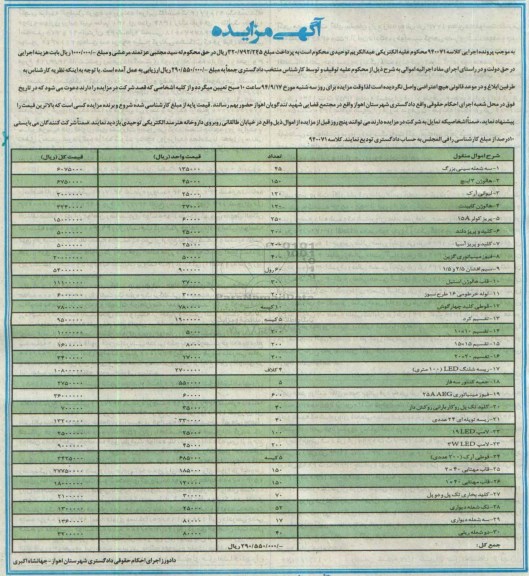 آگهی مزایده
به موجب پرونده اجرایی کلاسه ۹۴۰۰۷۱ محکوم علیه الکتریکی عبدالکریم توحیدی محکوم است به پرداخت مبلغ ۳۲۰/۷۹۲/۲۴۵ ریال در حق محکوم له سید مجتبی عزتمند مرعشی و مبلغ ۱/۰۰۰/۰۰۰ ریال بابت هزینه اجرایی
در حق دولت و در راستای اجرای مفاد اجرائیه اموالی به شرح ذیل از محکوم علیه توقیف و توسط کارشناس منتخب دادگستری جمعاً به مبلغ ۲۹۰/۵۵۰/۰۰۰ ریال ارزیابی به عمل آمده است. با توجه به اینکه نظریه کارشناس به
طرفین ابلاغ و در موعد قانونی هیچ اعتراضی واصل نگردیده است لذا وقت مزایده برای روز سه شنبه مورخ ۹۴/۹/۱۷ ساعت ۱۰ صبح تعیین میگردد و از کلیه اشخاصی که قصد شرکت در مزایده را دارند دعوت می شود که در تاریخ
فوق در محل شعبه اجرای احکام حقوقی واقع دادگستری شهرستان اهواز واقع در مجتمع قضایی شهید تندگویان اهواز حضور بهم رسانند. قیمت پایه از مبلغ کارشناسی شده شروع و برنده مزایده کسی است که بالاترین قیمت را
پیشنهاد نماید. ضمناً اشخاصیکه تمایل به شرکت در مزایده دارند می توانند پنج روز قبل از مزایده از اموال ذیل واقع در خیابان طالقانی روبروی داروخانه هنرمند الکتریکی توحیدی بازدید نمایند. ضمناً شرکت کنندگان می بایستی
۱۰درصد از مبلغ کارشناسی را فی المجلس به حساب دادگستری تودیع نمایند. کلاسه ۹۴۰۰۷۱
شرح اموال منقول تعداد قیمت واحد (ریال) قیمت کل (ریال)
۱-سه شعله سینی بزرگ ۴۵ ۱۳۵۰۰۰ ۶۰۷۵۰۰۰
۲-هالوژن ۱۵۰ ۴۵۰۰۰ ۶۷۵۰۰۰۰
۳-لیوانی ارک ۱۲۰ ۲۵۰۰۰ ۳۰۰۰۰۰۰
۴-هالوژن ۱۲۰ ۲۷۰۰۰ ۳۲۴۰۰۰۰
۵-پریز کولر ۱۵A ۲۵۰ ۶۰۰۰۰ ۱۵۰۰۰۰۰۰
۶-کلید و پریز دلند ۲۰۰ ۲۵۰۰۰ ۵۰۰۰۰۰۰
۷-کلید و پریز آسیا ۲۰۰ ۲۵۰۰۰ ۵۰۰۰۰۰۰
۸-فیوز مینیاتوری گرین ۴۰۰ ۵۰۰۰۰ ۲۰۰۰۰۰۰۰
۹-سیم افشان ۲/۵ و ۱/۵ ۶۰ رول ۹۰۰۰۰۰ ۵۴۰۰۰۰۰۰
۱۰-قاب هالوژن استیل ۳۰۰ ۳۷۰۰۰ ۱۱۱۰۰۰۰۰
۱۱-لوله خرطومی ۱۶ طرح نسوز ۲۰۰ ۳۰۰۰۰ ۶۰۰۰۰۰۰
۱۲-قوطی کلید چهارگوش ۱۰ کیسه ۷۸۰۰۰۰ ۷۸۰۰۰۰۰
۱۳-تقسیم گرد ۵ کیسه ۱۹۰۰۰۰۰ ۹۵۰۰۰۰۰
۱۴-تقسیم ۱۰×۱۰ ۲۰۰ ۵۰۰۰ ۱۰۰۰۰۰۰
۱۵-تقسیم ۱۵×۱۵ ۲۰۰ ۸۰۰۰ ۱۶۰۰۰۰۰
۱۶-تقسیم ۲۰×۲۰ ۲۰۰ ۱۷۰۰۰ ۳۴۰۰۰۰۰
۱۷-ریسه شلنگ LED (۱۰۰ متری) ۴ کلاف ۲۷۰۰۰۰۰ ۱۰۸۰۰۰۰۰
۱۸-جعبه کنتور سه فاز ۵ ۵۵۰۰۰۰ ۲۷۵۰۰۰۰
۱۹-فیوز مینیاتوری ۲۵A AEG ۶۰۰ ۶۰۰۰۰ ۳۶۰۰۰۰۰۰
۲۰-کلید تک پل روکار بارانی روکش دار ۲۰ ۳۵۰۰۰ ۷۰۰۰۰۰
۲۱-ریسه توپ ای ۲۴ عددی ۴۰ ۳۳۰۰۰۰ ۱۳۲۰۰۰۰۰
۲۲-لامپ LED ۱۹ ۱۰۰ ۲۵۰۰۰ ۲۵۰۰۰۰۰
۲۳-لامپ ۳W LED ۲۰۰ ۴۵۰۰۰ ۹۰۰۰۰۰۰
۲۴-قوطی ارک (۲۰۰ عددی) ۵ کیسه ۶۸۵۰۰۰ ۳۴۲۵۰۰۰
۲۵-قاب مهتابی ۴۰×۲ ۱۵۰ ۱۸۵۰۰۰ ۲۷۷۵۰۰۰۰
۲۶-قاب مهتابی ۴۰×۱ ۱۵۰ ۱۲۰۰۰۰ ۱۸۰۰۰۰۰۰
۲۷-کلید بخاری تک پل و دو پل ۷۰ ۳۰۰۰۰ ۲۱۰۰۰۰۰
۲۸-تک شعله دیواری ۵۲ ۲۵۰۰۰ ۱۳۰۰۰۰۰
۲۹-سه شعله دیواری ۱۷ ۸۰۰۰۰ ۱۳۶۰۰۰۰
۳۰-دو شعله ریلی ۴۰ ۸۰۰۰۰ ۳۲۰۰۰۰۰
جمع کل: ۲۹۰/۵۵۰/۰۰۰ ریال
دادورز اجرای احکام حقوقی دادگستری شهرستان اهواز - جهانشاه اکبری